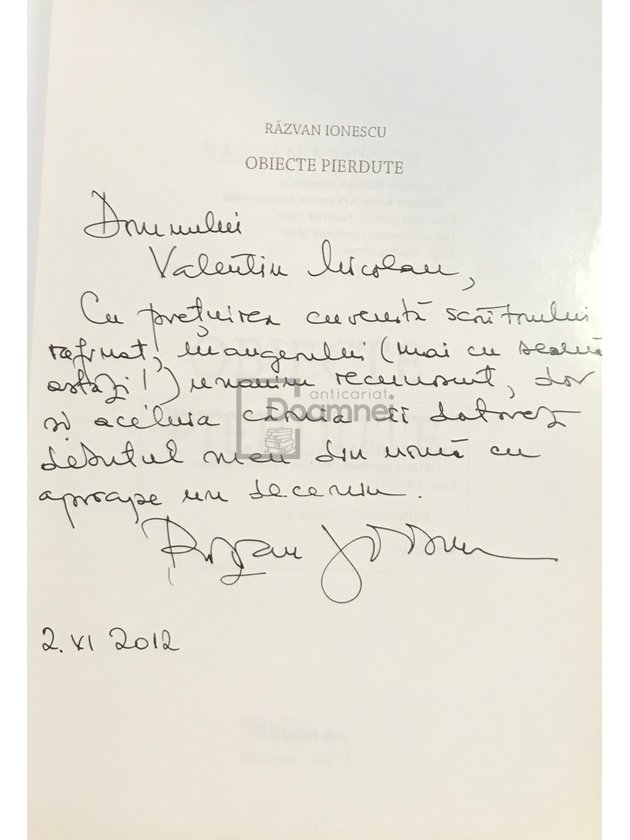 RĂZVAN IONESCU
OBIECTE PIERDUTE
Domnului
Valentin Nicolau,
Cu prețuirea cuvenită scriitorului
rafinat, managerului (mai cu seamă
astăzi!) unanim recunoscut, dar
și aceluia căruia îi datorez
debutul meu din urmă cu
aproape un deceniu.
Răzvan Ionescu
2. XI 2012
anticariat
Doamnei